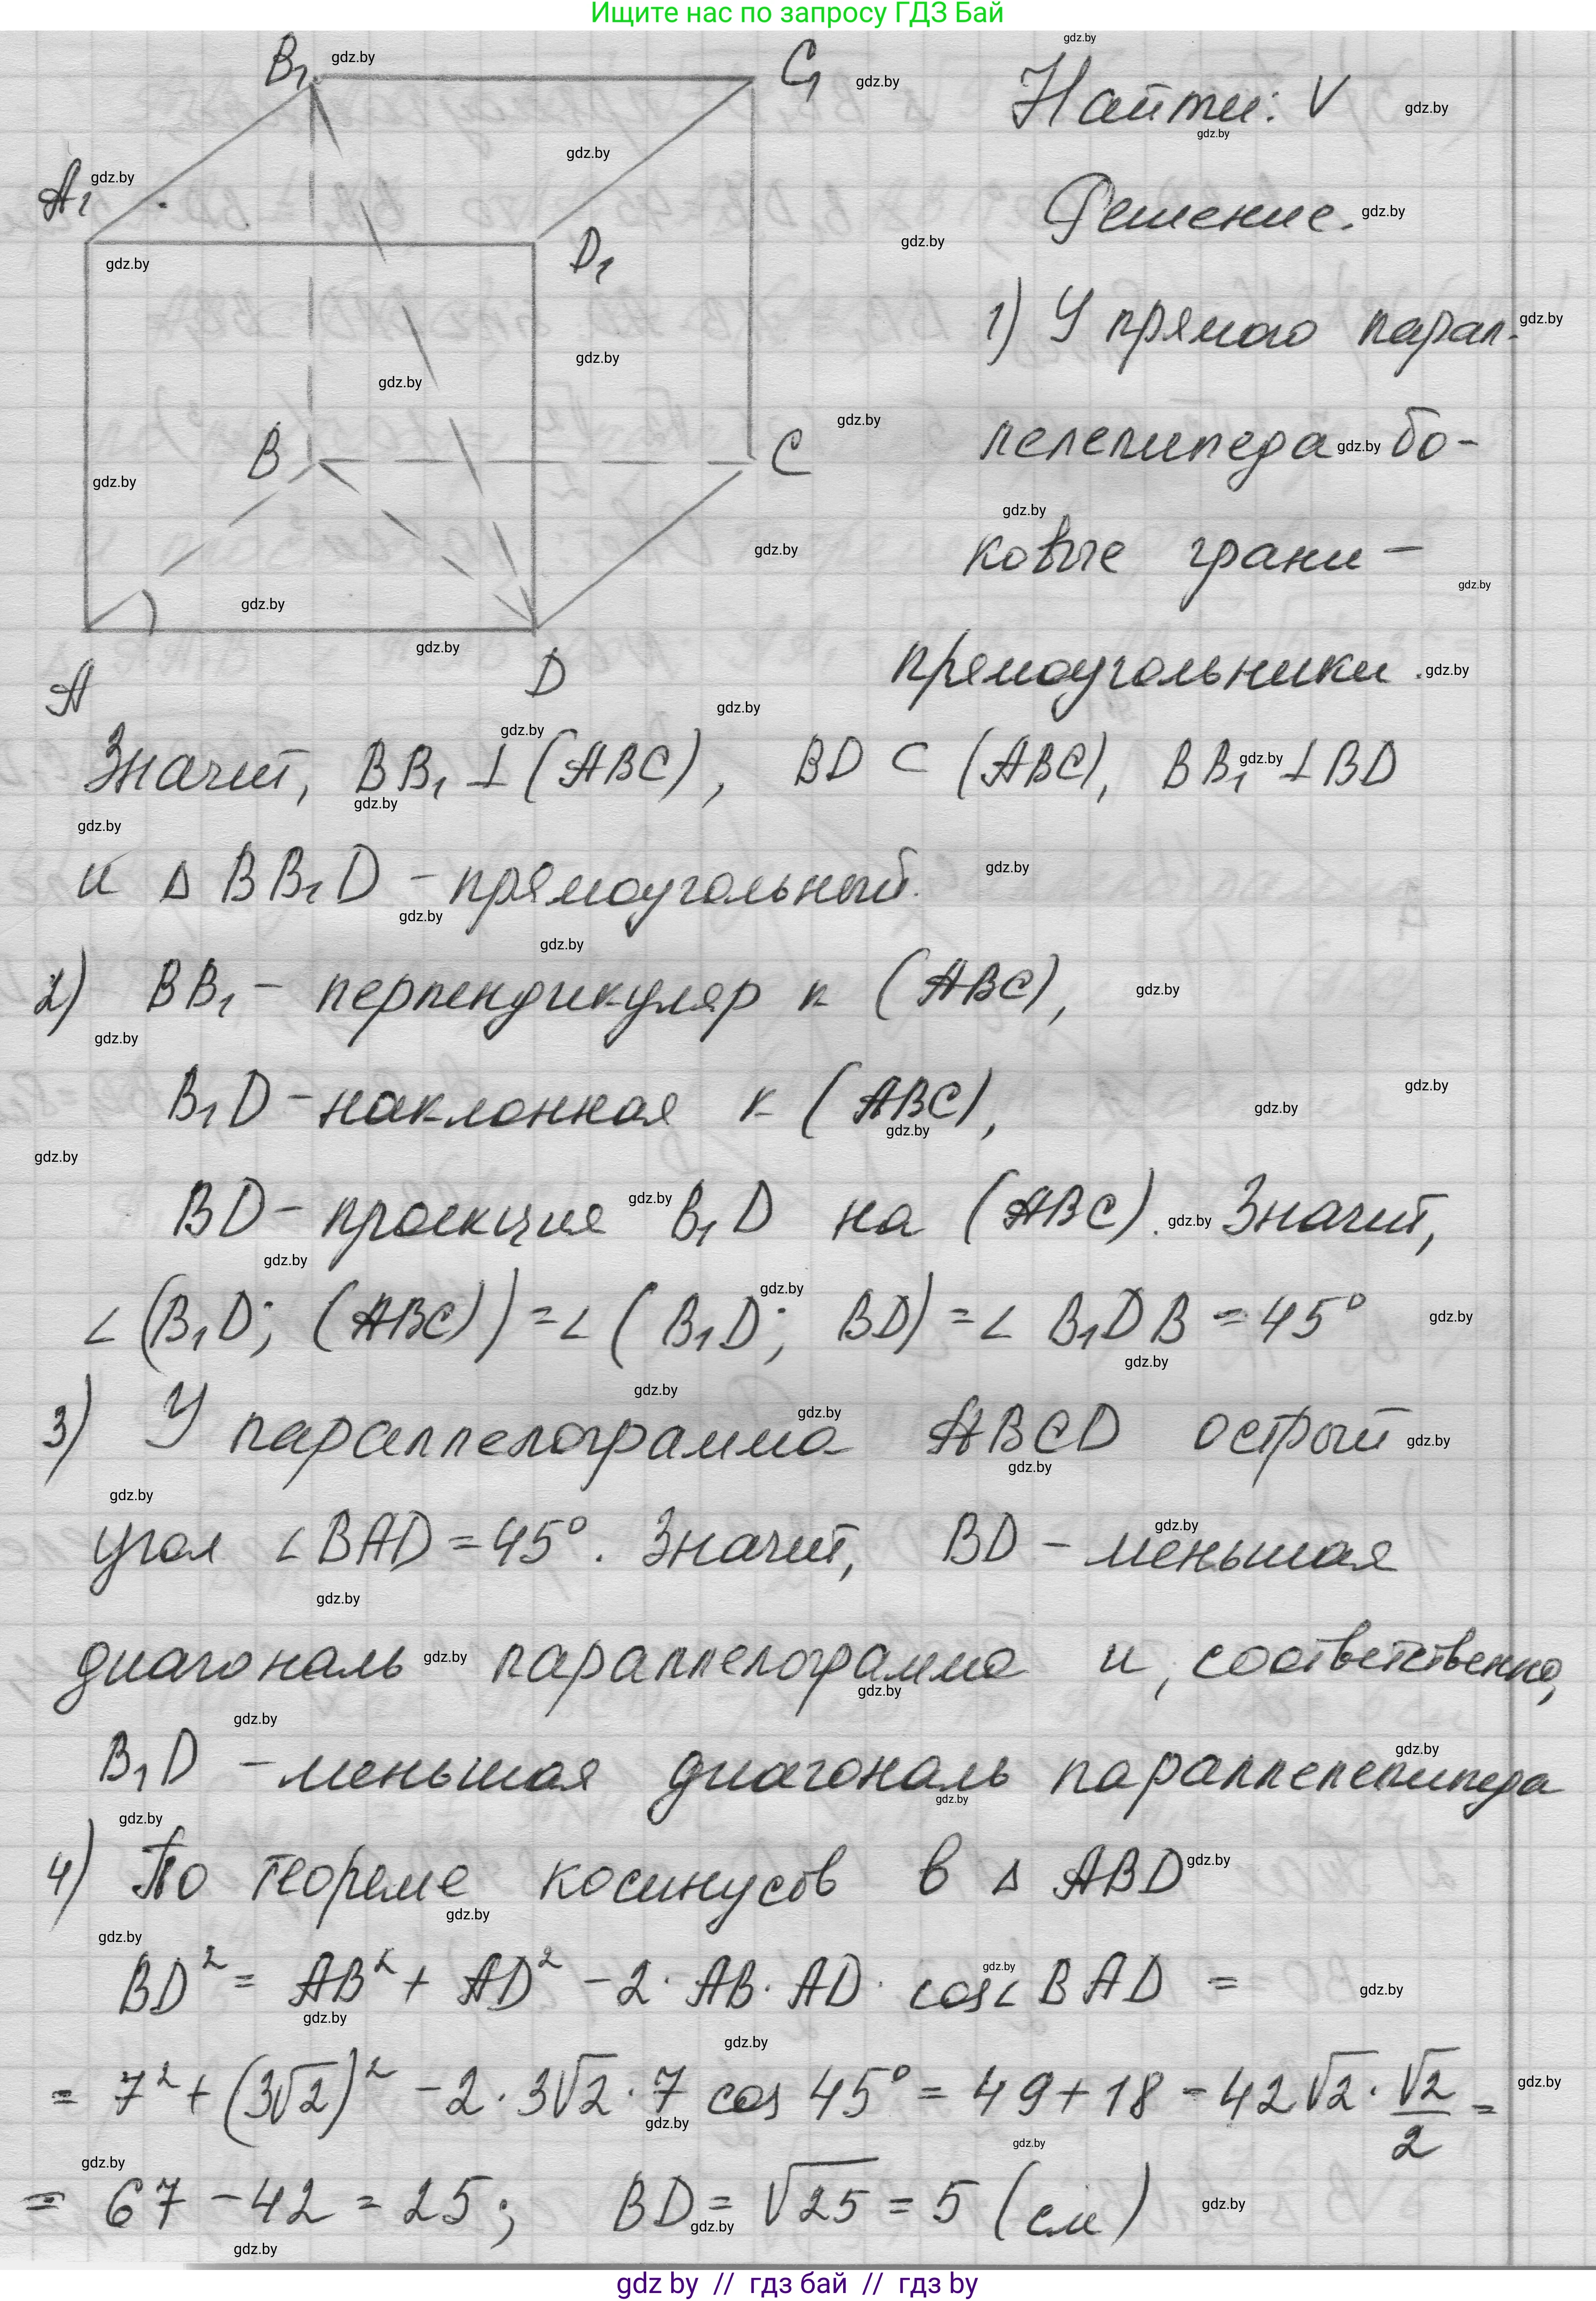 Ищите нас по запросу ГДЗ Бай
B₁
C₁
A₁
D₁
B
C
A
D
Найти: V
Решение.
1) У прямого парал-
лелепипеда бо-
ковые грани –
прямоугольники.
Значит, BB₁ ⊥ (ABC), BD ⊂ (ABC), BB₁ ⊥ BD
и Δ BB₁D – прямоугольный.
2) BB₁ – перпендикуляр к (ABC),
B₁D – наклонная к (ABC),
BD – проекция B₁D на (ABC). Значит,
∠(B₁D; (ABC)) = ∠(B₁D; BD) = ∠ B₁DB = 45°
3) У параллелограмма ABCD острый
угол ∠BAD = 45°. Значит, BD – меньшая
диагональ параллелограмма и, соответственно,
B₁D – меньшая диагональ параллелепипеда
4) По теореме косинусов в Δ ABD
BD² = AB² + AD² – 2 · AB · AD · cos∠BAD =
= 7² + (3√2)² – 2 · 3√2 · 7 cos 45° = 49 + 18 – 42√2 · √2/2 =
= 67 – 42 = 25; BD = √25 = 5 (см)
gdz by // гдз бай // гдз by